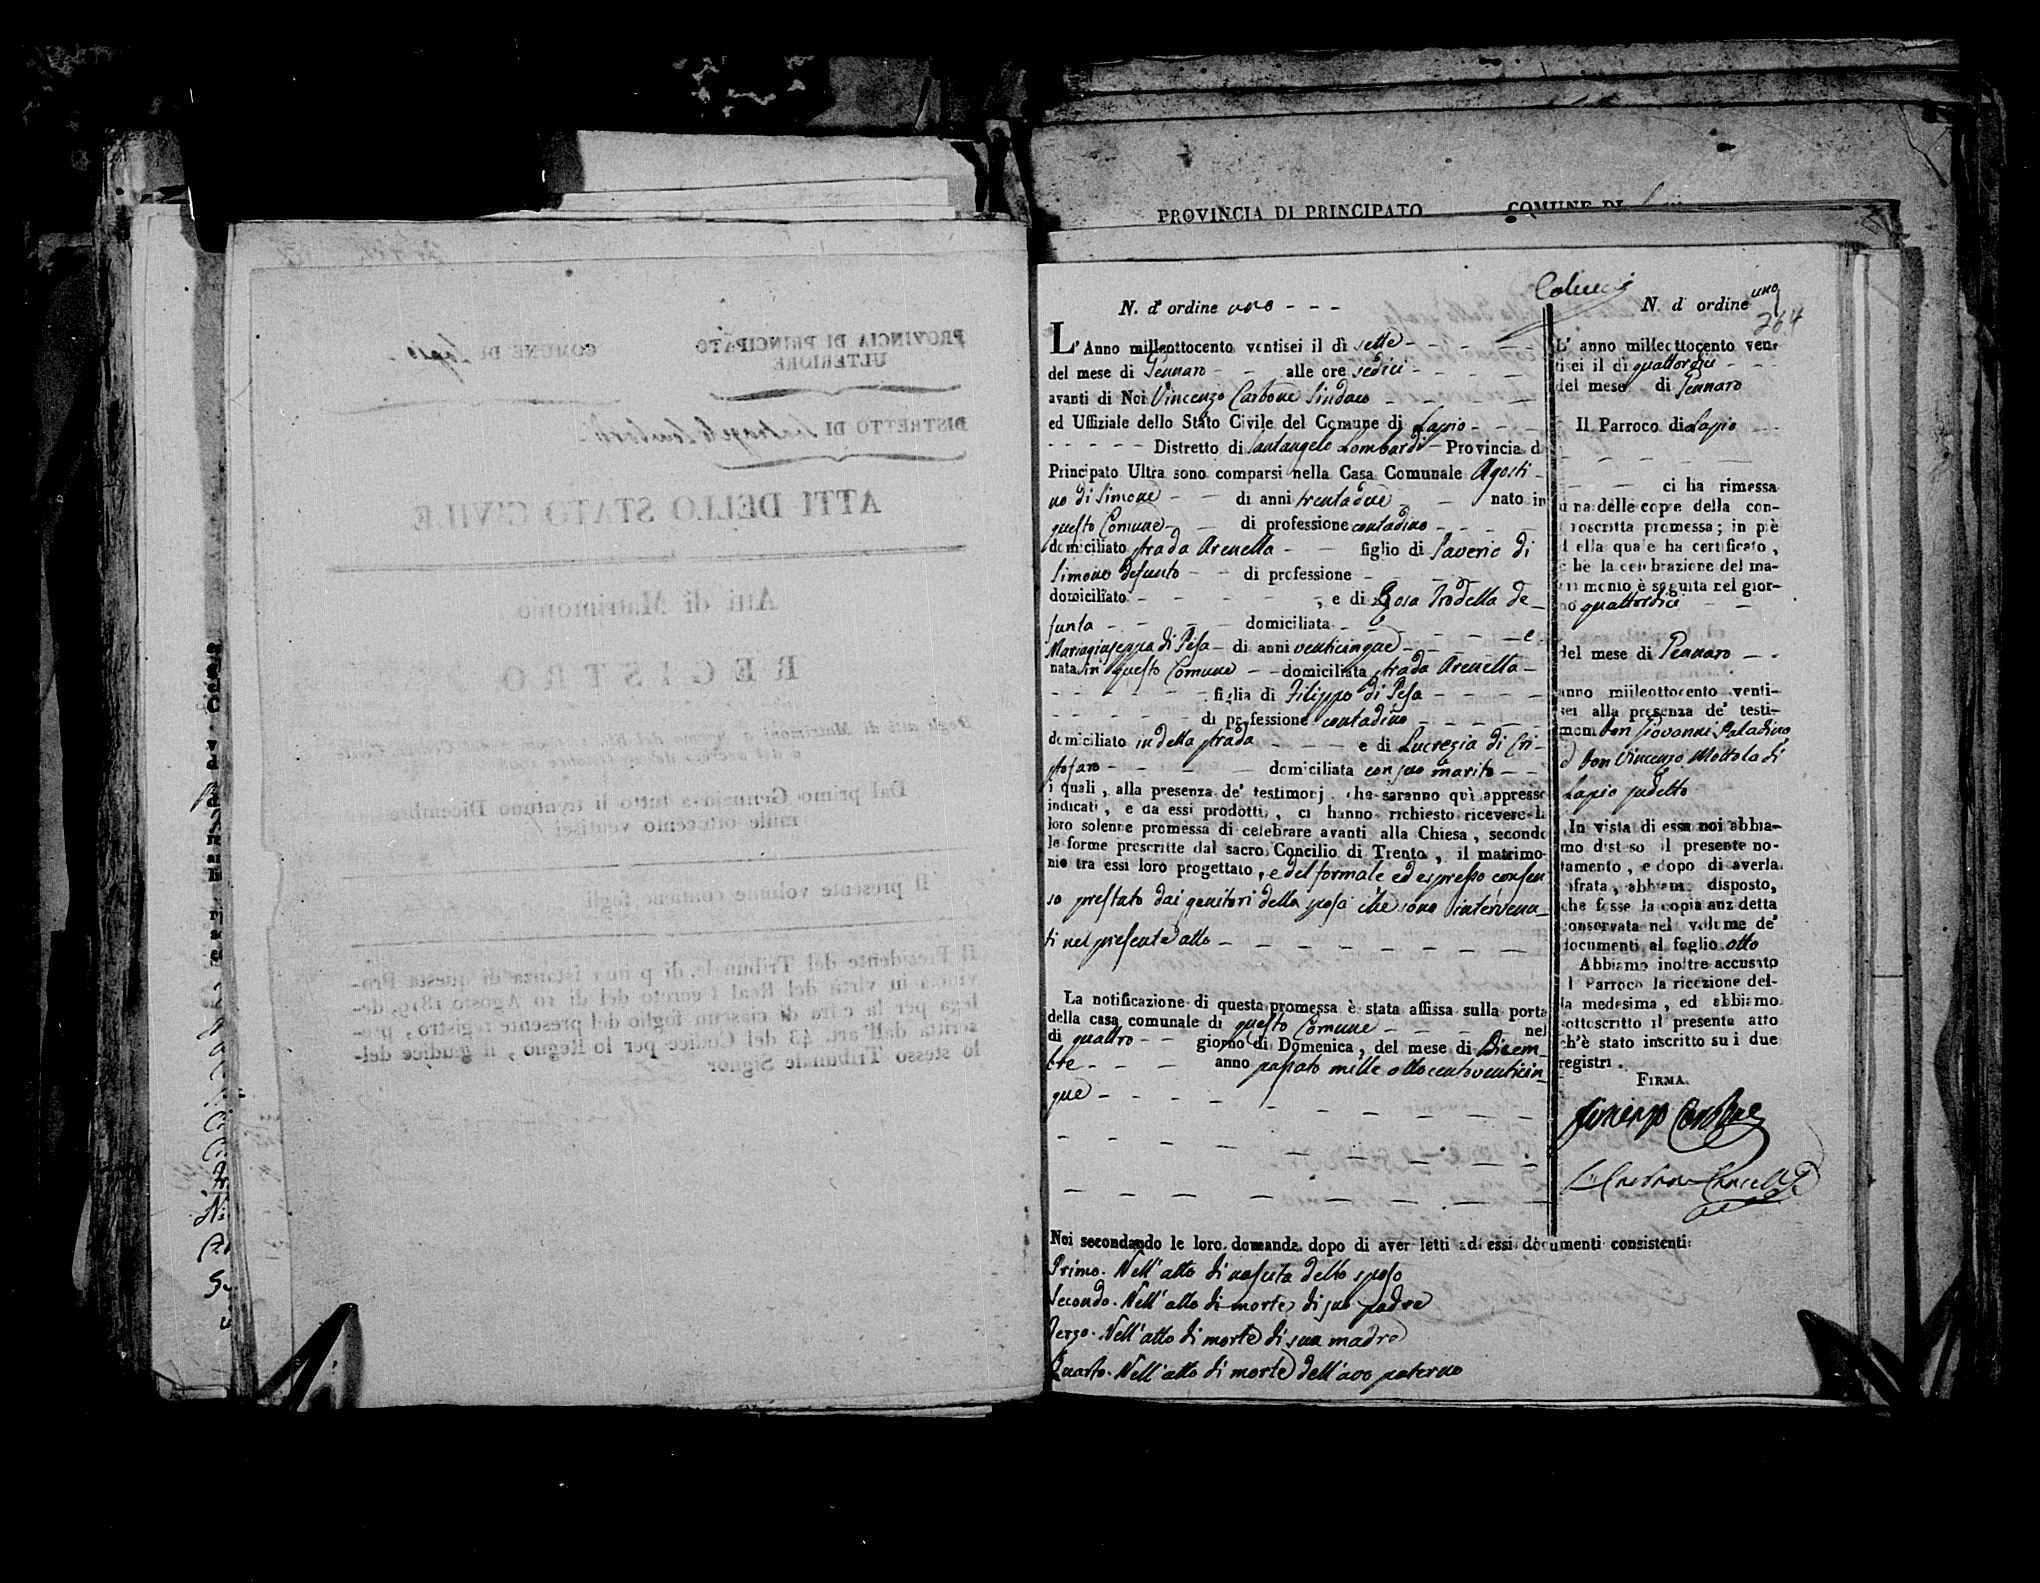 PROVINCIA DI PRINCIPATO COMUNE DI
PROVINCIA DI PRINCIPATO
ULTERIORE
COMUNE DI Lapio
DISTRETTO DI
ATTI DELLO STATO CIVILE
Atti di Matrimonio
REGISTRO
Dal primo Gennaio a tutto li trentuno Dicembre
mille ottocento ventisei
Il presente volume contiene fogli
Il Presidente del Tribunale di prima istanza di questa Pro-
vincia in virtù del Real Decreto del di 10 Agosto 1819, de-
lega per la cifra di ciascun foglio del presente registro, pre-
scritta dall'art. 43 del Codice per lo Regno, il giudice del-
lo stesso Tribunale Signor
N. d'ordine uno - - -
L'Anno milleottocento ventisei il dì sette
del mese di Gennaro - - alle ore sedici
avanti di Noi Vincenzo Carbone Sindaco
ed Uffiziale dello Stato Civile del Comune di Lapio
Distretto di Santangelo Lombardi - Provincia d
Principato Ultra sono comparsi nella Casa Comunale Agosti-
no di Simone - - di anni trentadue - nato in
questo Comune - - di professione contadino
domiciliato strada Arenella - - figlio di Saverio di
Simone defunto - - di professione
domiciliato - - , e di Rosa Trodella de-
funta - - domiciliata - - e
Mariagiuseppa di Pesa - di anni venticinque
nata in questo Comune - - domiciliata strada Arenella -
figlia di Filippo di Pesa
di professione contadino
domiciliato in detta strada - - e di Lucrezia di Cri-
stofaro - - domiciliata con suo marito - -
i quali, alla presenza de' testimonj che saranno quì appresso
indicati, e da essi prodotti, ci hanno richiesto ricevere la
loro solenne promessa di celebrare avanti alla Chiesa, secondo
le forme prescritte dal sacro Concilio di Trento, il matrimo-
nio tra essi loro progettato, e del formale ed espresso consen
so prestato dai genitori della sposa che sono intervenu-
ti nel presente atto
La notificazione di questa promessa è stata affissa sulla porta
della casa comunale di questo Comune - - nel
di quattro - - giorno di Domenica, del mese di Dicem-
bre - - anno passato mille ottocentoventicin-
que
Noi secondando le loro domande dopo di aver letti ad essi documenti consistenti
Primo. Nell'atto di nascita dello sposo
Secondo. Nell'atto di morte di suo padre
Terzo. Nell'atto di morte di sua madre
Quarto. Nell'atto di morte dell'avo paterno
N. d'ordine uno
264
L'anno milleottocento ven-
tisei il di quattordici
del mese di Gennaro
Il Parroco di Lapio
ci ha rimessa
una delle copie della con-
troscritta promessa; in piè
della quale ha certificato,
che la celebrazione del ma-
trimonio è seguita nel gior-
no quattordici
del mese di Gennaro
anno milleottocento venti-
sei alla presenza de' testi-
moni Don Giovanni Paladino
e Don Vincenzo Mottola di
Lapio sudetto
In vista di essa noi abbia-
mo disteso il presente no-
tamento, e dopo di averla
cifrata, abbiamo disposto,
che fosse la copia anzidetta
conservata nel volume de'
documenti al foglio otto
Abbiamo inoltre accusato
al Parroco la ricezione del-
la medesima, ed abbiamo
sottoscritto il presente atto
ch'è stato inscritto su i due
registri.
FIRMA.
Vincenzo Carbone